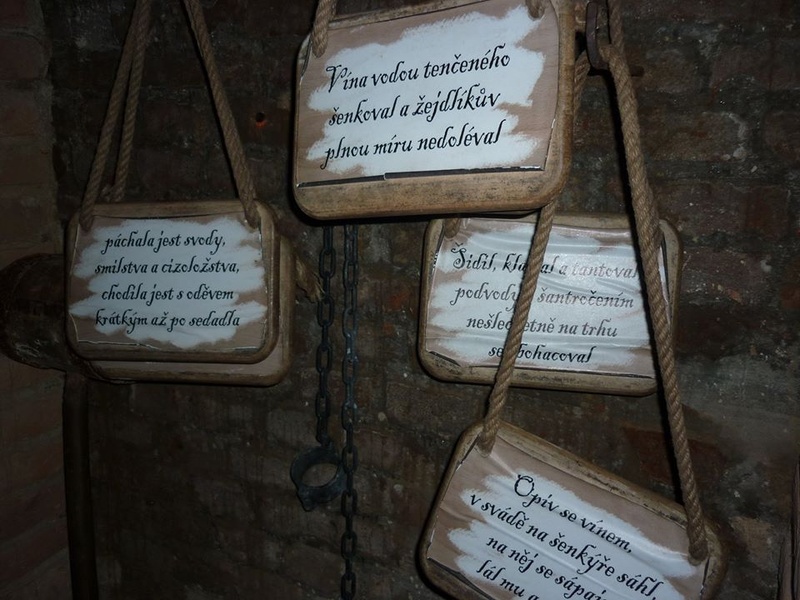 Vína vodou tenčeného
šenkoval a žejdlíkův
plnou míru nedoléval
páchala jest svody,
smilstva a cizoložstva,
chodila jest s oděvem
krátkým až po sedadla
Šidil, a tantoval
podvody šantročením
na trhu
Opiv se vínem,
v svádě na šenkýře sáhl,
na něj se
lál mu